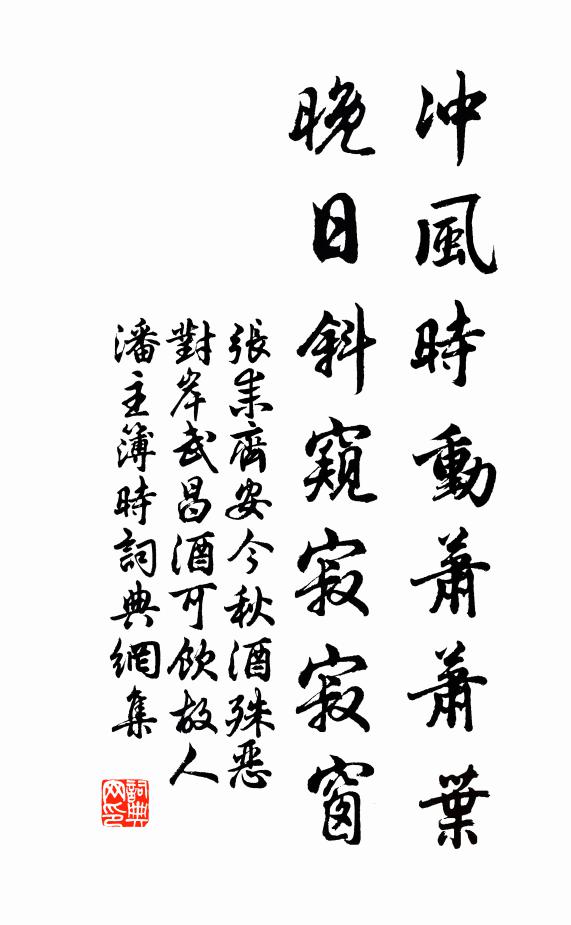 冲風時動蕭蕭葉
晚日斜窺寂寂窗
張耒齊安今秋酒殊惡
對岸武昌酒可飲故人
潘主簿時詞典網集
詞典網印